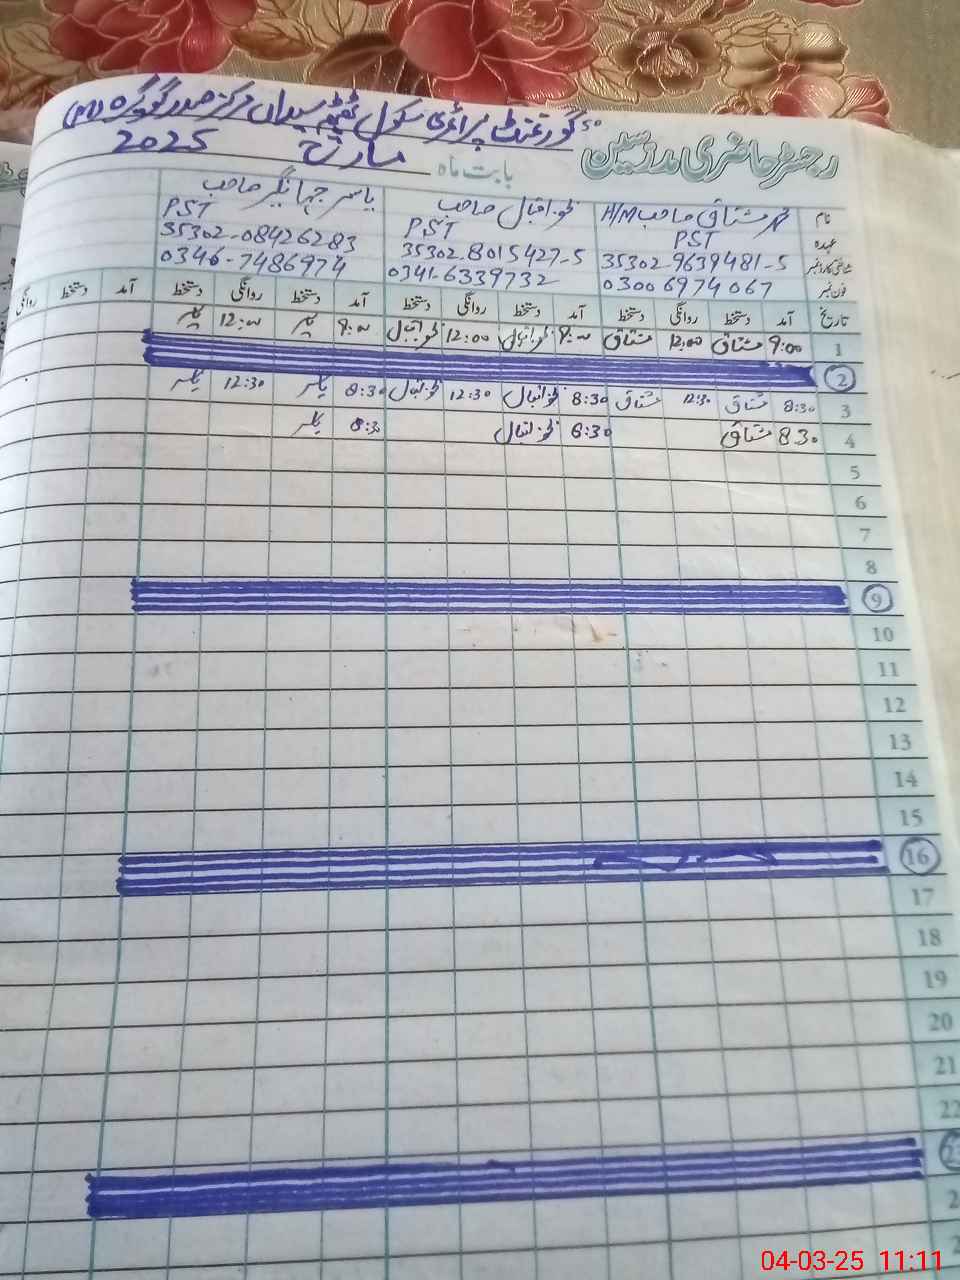 گورنمنٹ پرائمری سکول ٹھٹھہ سیداں مرکز صدر گوگیرہ (M)
رجسٹر حاضری مدرسین
بابت ماہ مارچ 2025
نام محمد مشتاق صاحب H/M ظفر اقبال صاحب یاسر جہانگیر صاحب
عہدہ PST PST PST
شناختی کارڈ نمبر 35302-9639481-5 35302-8015427-5 35302-08426283
فون نمبر 03006974067 0341-6339732 0346-7486974
تاریخ آمد دستخط روانگی دستخط آمد دستخط روانگی دستخط آمد دستخط روانگی دستخط آمد دستخط روانگی
1 9:00 مشتاق 12:00 مشتاق 9:00 ظفر اقبال 12:00 ظفر اقبال 9:00 یاسر 12:00 یاسر
2
3 8:30 مشتاق 12:30 مشتاق 8:30 ظفر اقبال 12:30 ظفر اقبال 8:30 یاسر 12:30 یاسر
4 8:30 مشتاق 8:30 ظفر اقبال 8:30 یاسر
5
6
7
8
9
10
11
12
13
14
15
16
17
18
19
20
21
22
23
04-03-25 11:11